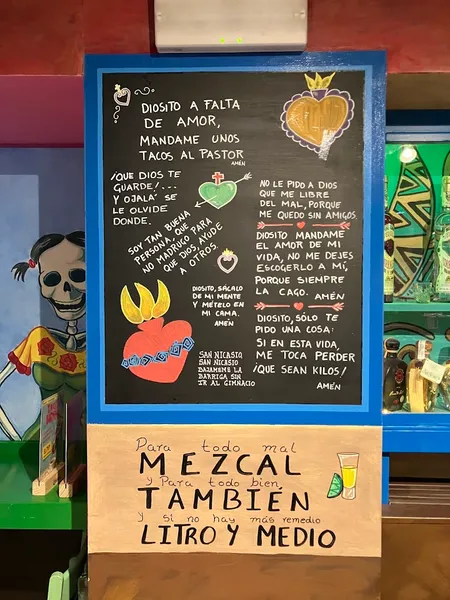 DIOSITO A FALTA
DE AMOR,
MANDAME UNOS
TACOS AL PASTOR
AMÉN
¡QUE DIOS TE
GUARDE!...
Y OJALÁ SE
LE OLVIDE
DONDE.
SOY TAN BUENA
PERSONA, QUE
NO MADRUGO PARA
QUE DIOS AYUDE
A OTROS.
DIOSITO, SÁCALO
DE MI MENTE
Y MÉTELO EN
MI CAMA.
AMÉN
SAN NICASIO,
SAN NICASIO
BAJAMELE LA
BARRIGA SIN
IR AL GIMNACIO
NO LE PIDO A DIOS
QUE ME LIBRE
DEL MAL, PORQUE
ME QUEDO SIN AMIGOS.
DIOSITO MANDAME
EL AMOR DE MI
VIDA, NO ME DEJES
ESCOGERLO A MÍ,
PORQUE SIEMPRE
LA CAGO. AMÉN
DIOSITO, SÓLO TE
PIDO UNA COSA:
SI EN ESTA VIDA,
ME TOCA PERDER
¡QUE SEAN KILOS!
AMÉN
Para todo mal
MEZCAL
y Para todo bien,
TAMBIÉN
y si no hay más remedio
LITRO Y MEDIO